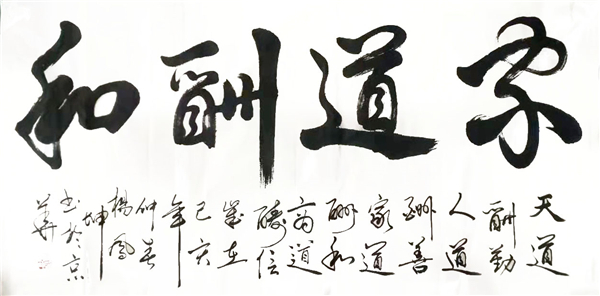 家道酬和
天道
酬勤
人道
酬善
家道
酬和
商道
酬信
歲在
己亥
年
仲春
楊鳳
坤
书於京
華